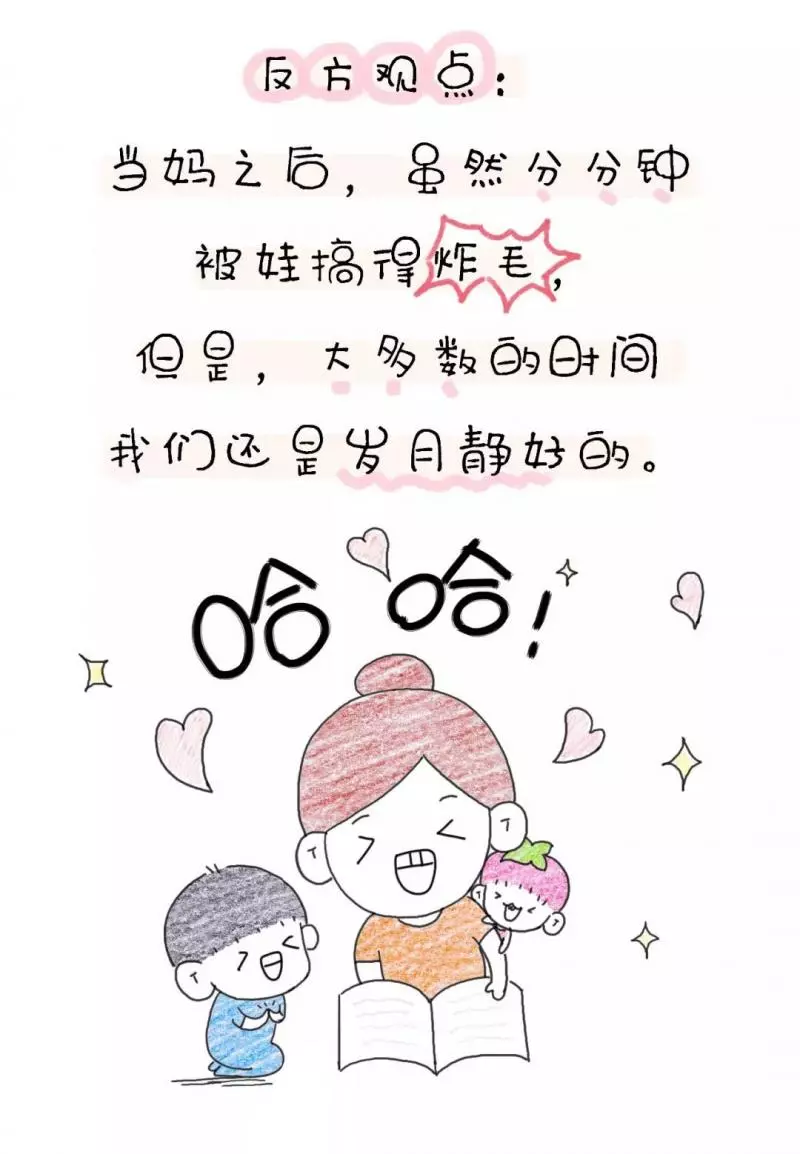 反方观点：
当妈之后，虽然分分钟
被娃搞得炸毛，
但是，大多数的时间
我们还是岁月静好的。
哈哈！